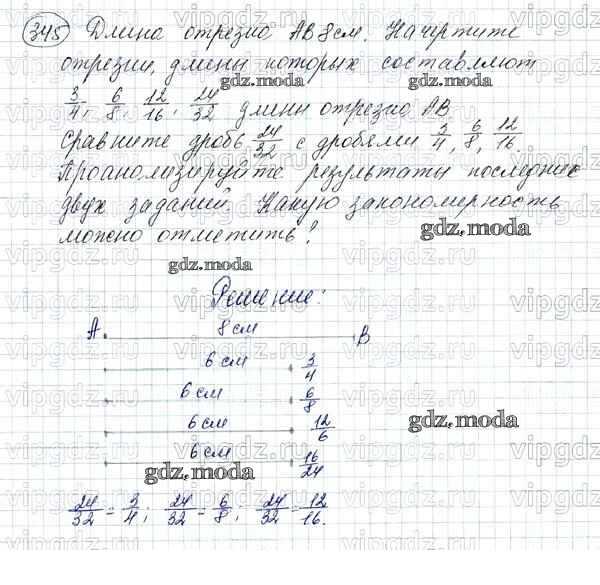 345 Длина отрезка AB 8 см. Начертите
отрезки, длины которых составляют
gdz.moda gdz.moda
3/4, 6/8, 12/16, 24/32 длины отрезка AB.
Сравните дробь 24/32 с дробями 3/4, 6/8, 12/16.
Проанализируйте результаты последних
двух заданий. Какую закономерность
можно отметить?
gdz.moda
gdz.moda
Решение:
A 8 см B
6 см 3/4
6 см 6/8
6 см 12/6
gdz.moda
6 см 16/24
gdz.moda
24/32 = 3/4; 24/32 = 6/8; 24/32 = 12/16.
vipgdz.ru